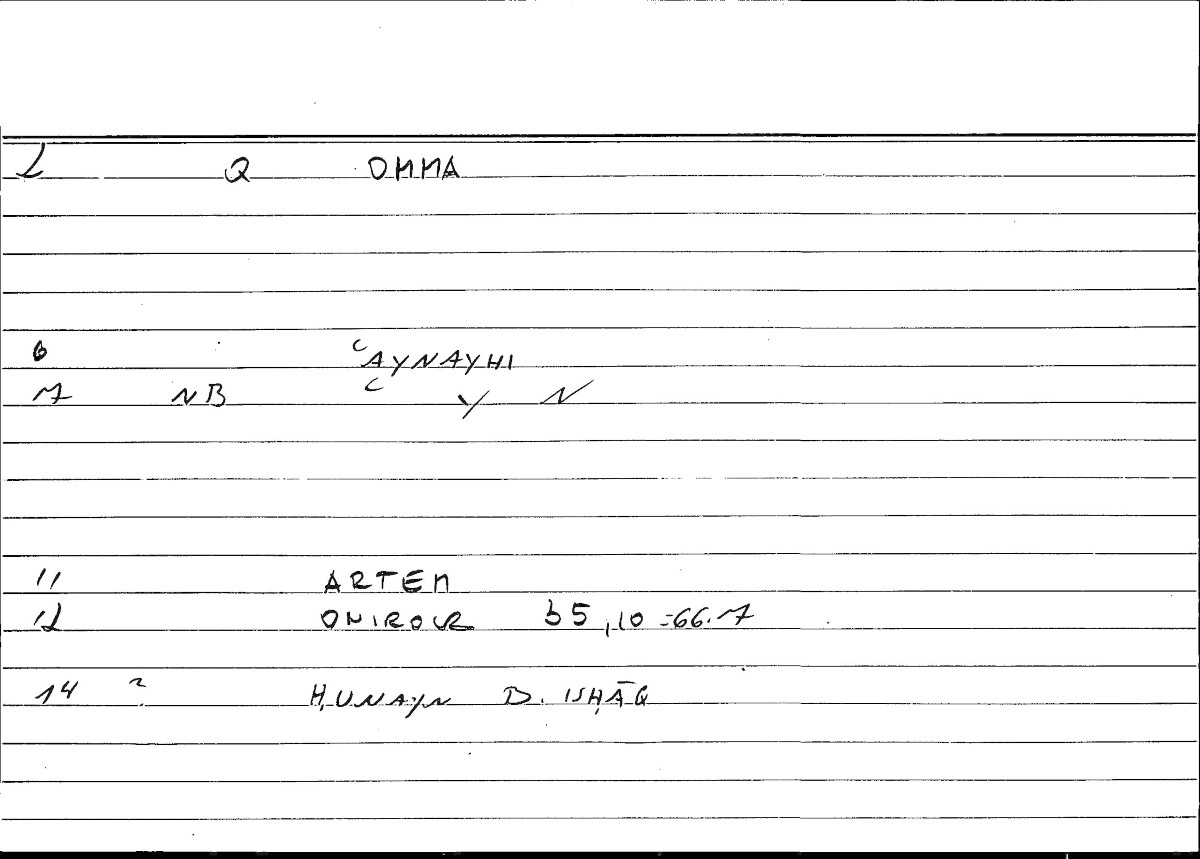 2 Q OMMA
6 ʿAYNAYHI
7 NB ʿ Y N
11 ARTEM
12 ONIROCR 35,10 = 66.7
14 ? ḤUNAYN B. ISḤĀQ